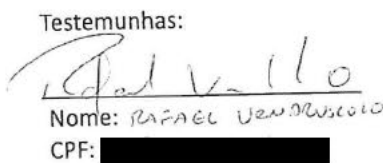 Testemunhas:
Nome: RAFAEL VENDRUSCOLO
CPF: